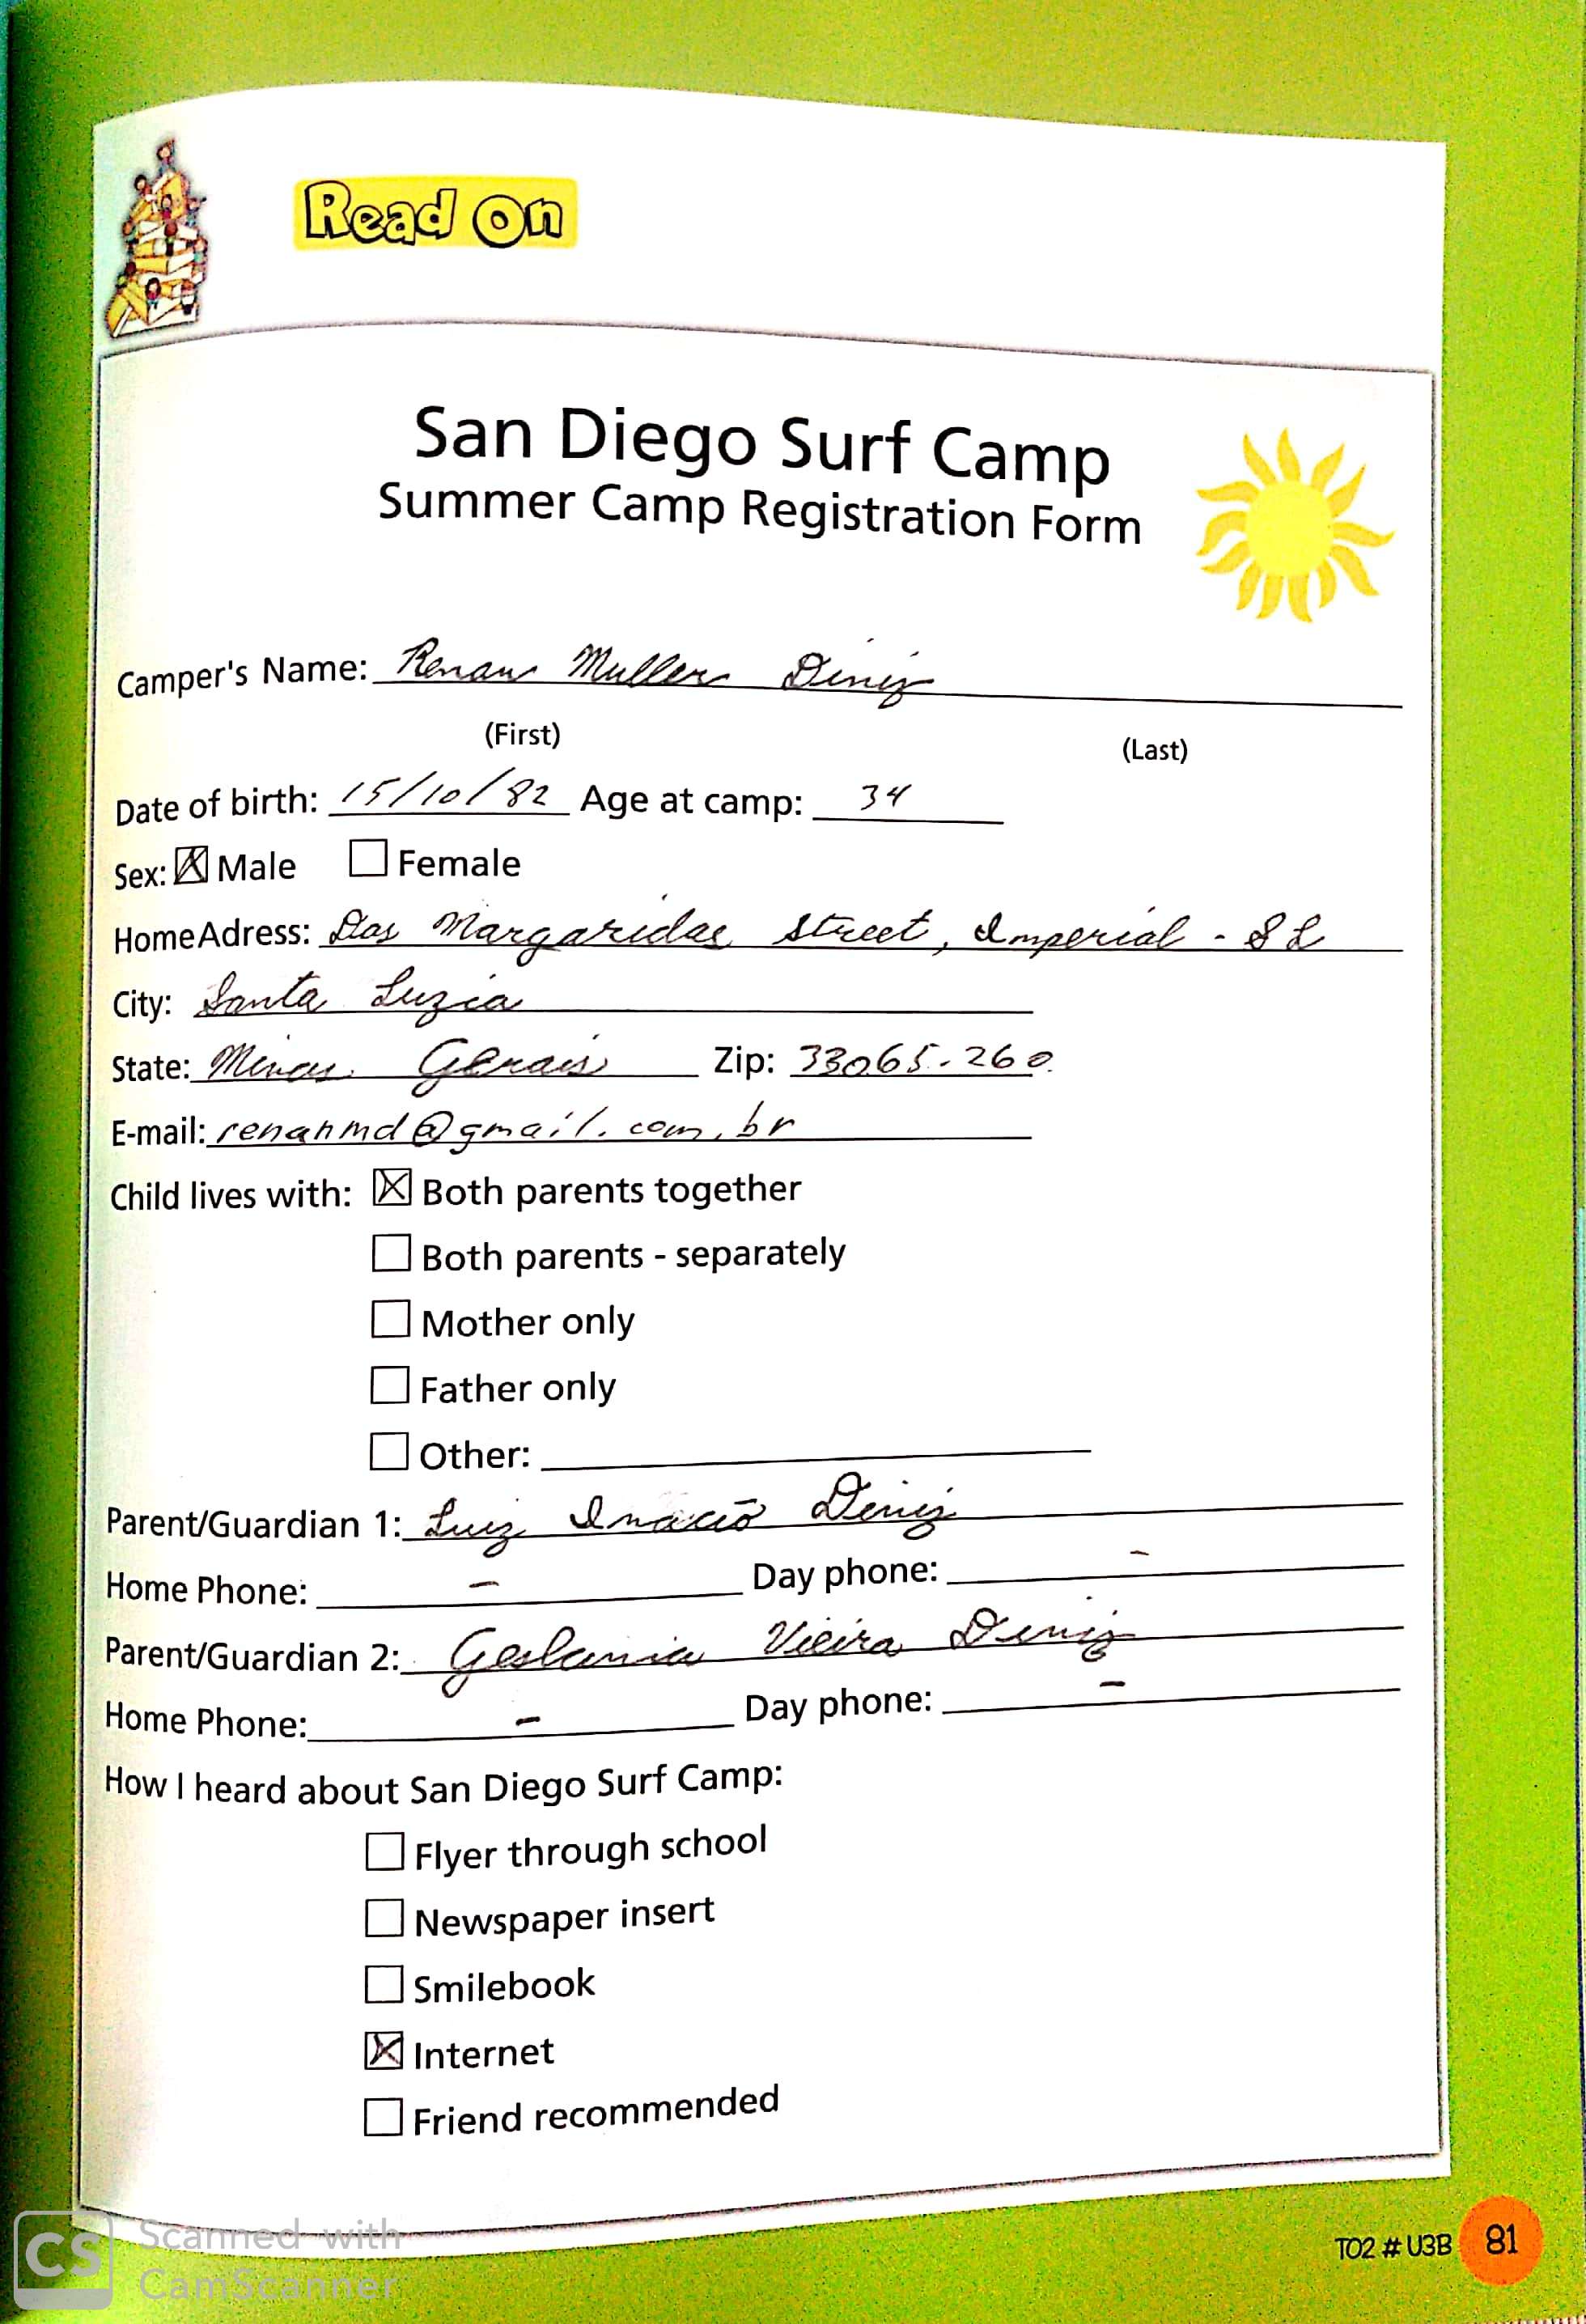 Read On
San Diego Surf Camp
Summer Camp Registration Form
Camper's Name: Renan Muller Diniz
(First) (Last)
Date of birth: 15/10/82 Age at camp: 34
Sex: Male Female
Home Adress: Das Margaridas Street, Imperial - SL
City: Santa Luzia
State: Minas Gerais Zip: 33065-260
E-mail: renanmd@gmail.com.br
Child lives with: Both parents together
Both parents - separately
Mother only
Father only
Other:
Parent/Guardian 1: Luiz Inácio Diniz
Home Phone: - Day phone: -
Parent/Guardian 2: Geslania Vieira Diniz
Home Phone: - Day phone: -
How I heard about San Diego Surf Camp:
Flyer through school
Newspaper insert
Smilebook
Internet
Friend recommended
TO2 # U3B 81
CS Scanned with
CamScanner